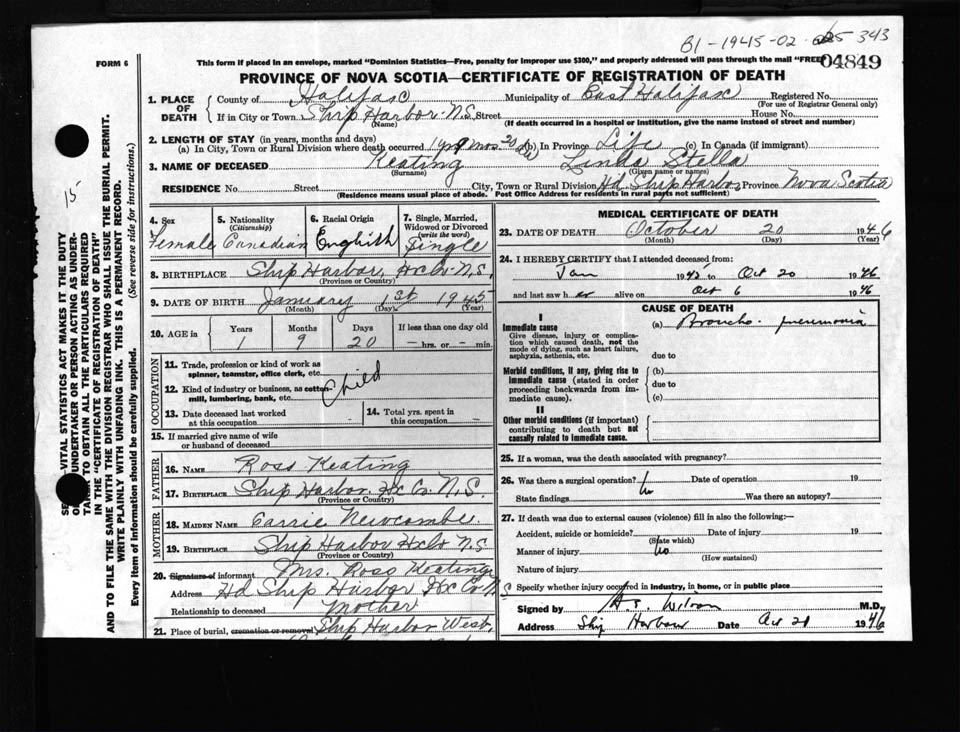 B1-1945-02 343
FORM 6
This form if placed in an envelope, marked "Dominion Statistics—Free, penalty for improper use $300," and properly addressed will pass through the mail "FREE"
04849
PROVINCE OF NOVA SCOTIA—CERTIFICATE OF REGISTRATION OF DEATH
1. PLACE OF DEATH
County of Halifax Municipality of East Halifax Registered No.
(For use of Registrar General only)
If in City or Town Ship Harbor N.S. Street House No.
(Name) (If death occurred in a hospital or institution, give the name instead of street and number)
2. LENGTH OF STAY (in years, months and days)
(a) In City, Town or Rural Division where death occurred 1 yr 9 mos. 20 da (b) In Province Life (c) In Canada (if immigrant)
3. NAME OF DECEASED Keating Linda Stella
(Surname) (Given name or names)
RESIDENCE No. Street City, Town or Rural Division Hd. Ship Harbor Province Nova Scotia
(Residence means usual place of abode. Post Office Address for residents in rural parts not sufficient)
15
SEC. —VITAL STATISTICS ACT MAKES IT THE DUTY
OF UNDERTAKER OR PERSON ACTING AS UNDER-
TAKER TO OBTAIN ALL THE PARTICULARS REQUIRED
IN THE "CERTIFICATE OF REGISTRATION OF DEATH"
AND TO FILE THE SAME WITH THE DIVISION REGISTRAR WHO SHALL ISSUE THE BURIAL PERMIT.
WRITE PLAINLY WITH UNFADING INK. THIS IS A PERMANENT RECORD.
Every item of information should be carefully supplied. (See reverse side for instructions.)
4. Sex
Female
5. Nationality
(Citizenship)
Canadian
6. Racial Origin
English
7. Single, Married,
Widowed or Divorced
(write the word)
Single
8. BIRTHPLACE Ship Harbor, Hx Co. N.S.
(Province or Country)
9. DATE OF BIRTH January 1st 1945
(Month) (Day) (Year)
10. AGE in
Years Months Days If less than one day old
1 9 20 — hrs. or — min.
OCCUPATION
11. Trade, profession or kind of work as
spinner, teamster, office clerk, etc.
12. Kind of industry or business, as cotton-
mill, lumbering, bank, etc.
Child
13. Date deceased last worked
at this occupation —
14. Total yrs. spent in
this occupation —
15. If married give name of wife
or husband of deceased
FATHER
16. NAME Ross Keating
17. BIRTHPLACE Ship Harbor Hx Co. N.S.
(Province or Country)
MOTHER
18. MAIDEN NAME Carrie Newcombe.
19. BIRTHPLACE Ship Harbor Hx Co N.S
(Province or Country)
20. Signature of informant Mrs. Ross Keating
Address Hd Ship Harbor Hx Co N S
Relationship to deceased Mother
21. Place of burial, cremation or removal Ship Harbor West,
MEDICAL CERTIFICATE OF DEATH
23. DATE OF DEATH October 20 1946
(Month) (Day) (Year)
24. I HEREBY CERTIFY that I attended deceased from:
Jan 1945 to Oct 20 1946
and last saw her alive on Oct 6 1946
CAUSE OF DEATH
I
Immediate cause
Give disease, injury or complica-
tion which caused death, not the
mode of dying, such as heart failure,
asphyxia, asthenia, etc.
(a) Broncho-pneumonia
due to
Morbid conditions, if any, giving rise to
immediate cause (stated in order
proceeding backwards from im-
mediate cause).
(b)
due to
(c)
II
Other morbid conditions (if important)
contributing to death but not
causally related to immediate cause.
25. If a woman, was the death associated with pregnancy?
26. Was there a surgical operation? No Date of operation 19
State findings Was there an autopsy?
27. If death was due to external causes (violence) fill in also the following:—
Accident, suicide or homicide? Date of injury 19
(State which)
Manner of injury No
(How sustained)
Nature of injury
Specify whether injury occurred in industry, in home, or in public place
Signed by Wilson M.D.
Address Ship Harbour Date Oct 21 1946